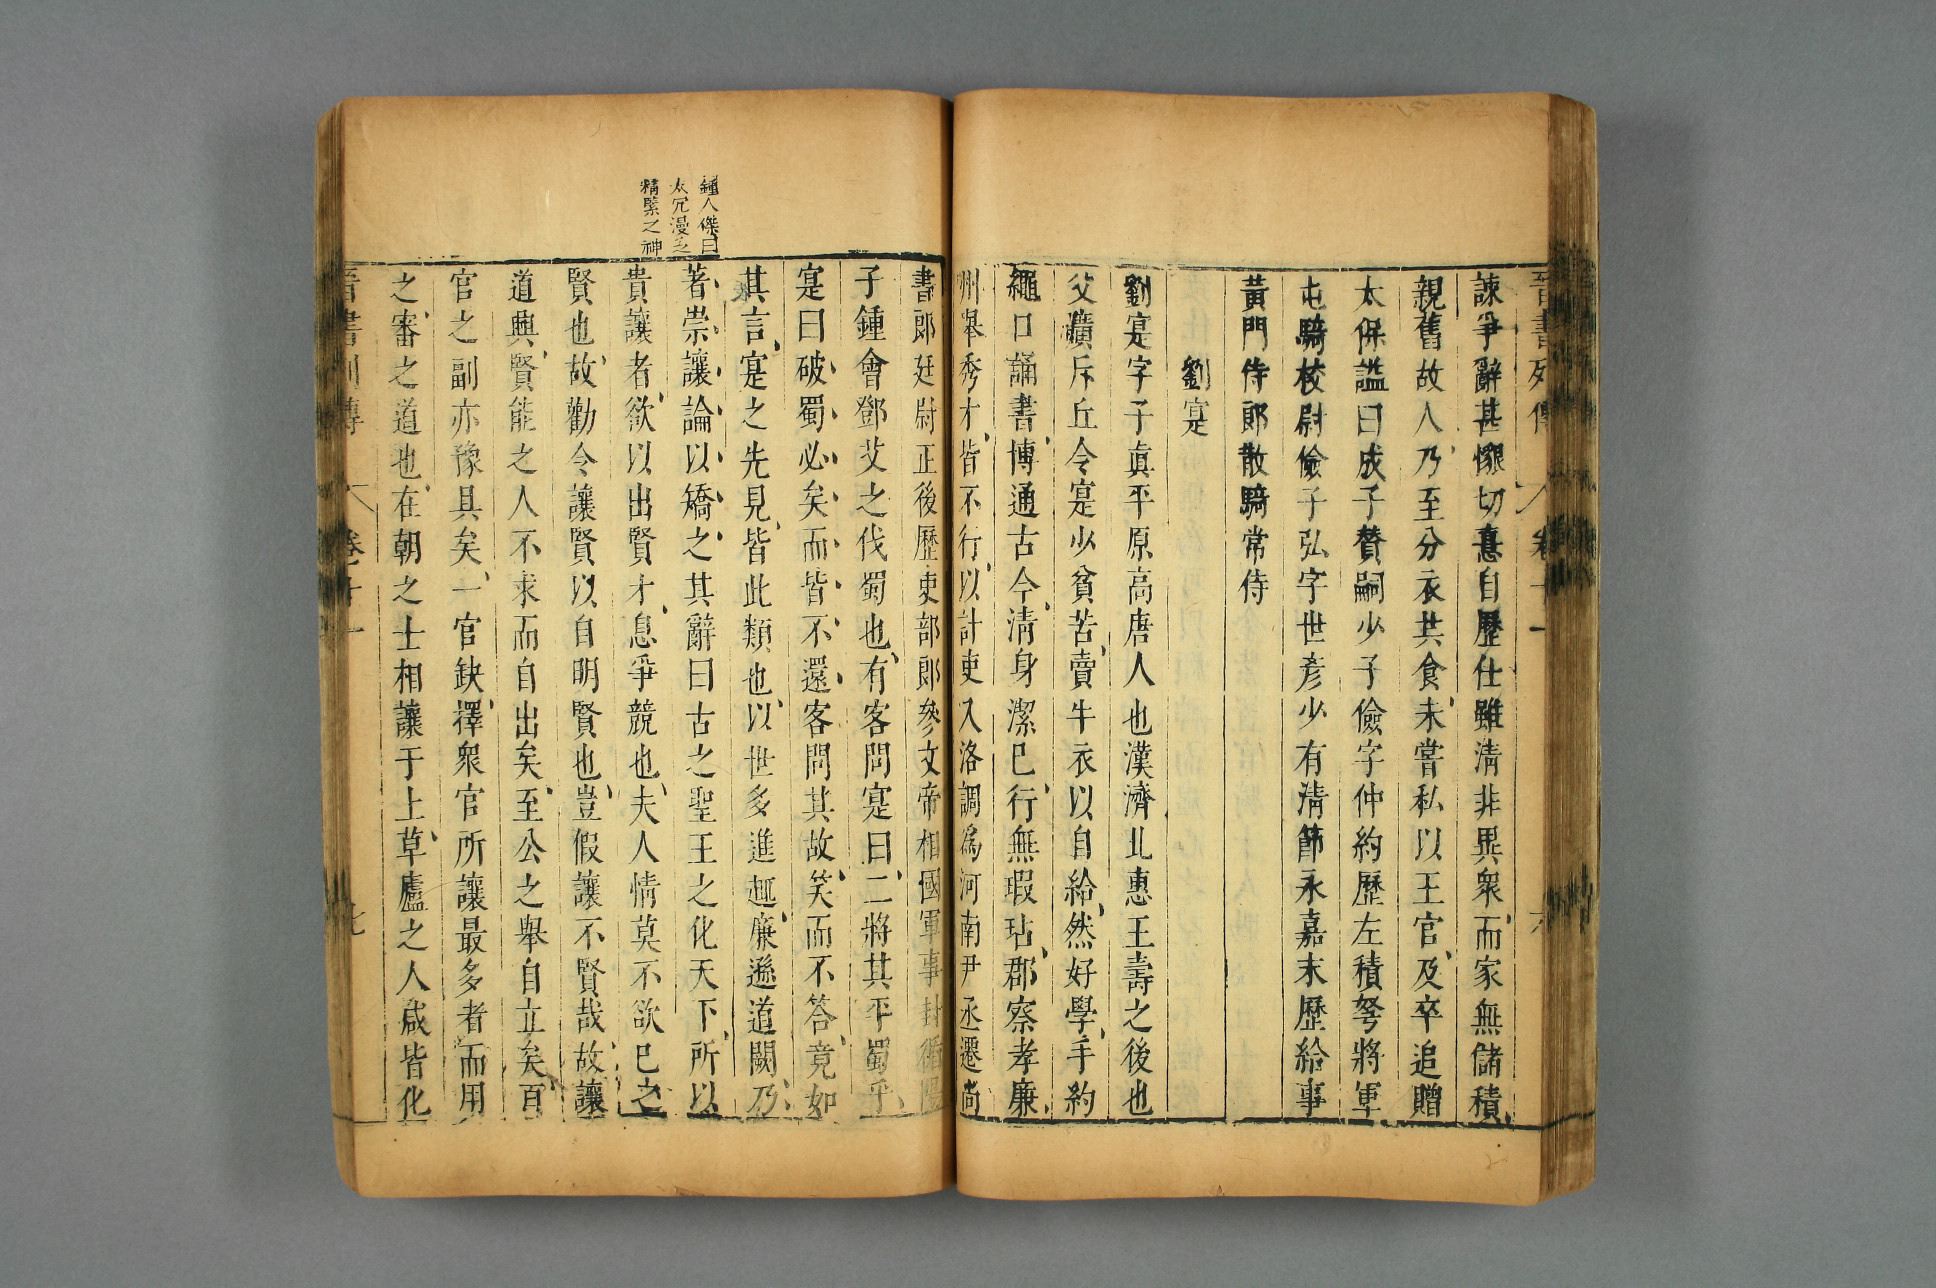 晉書列傳 卷十一 六
諫爭辭甚懇切憙自歷仕雖清非異衆而家無儲積
親舊故人乃至分衣共食未嘗私以王官及卒追贈
太保謚曰成子贊嗣少子儉字仲約歷左積弩將軍
屯騎校尉儉子弘字世彥少有清節永嘉末歷給事
黃門侍郎散騎常侍
劉寔
劉寔字子眞平原高唐人也漢濟北惠王壽之後也
父廣斥丘令寔少貧苦賣牛衣以自給然好學手約
繩口誦書博通古今清身潔已行無瑕玷郡察孝廉
州舉秀才皆不行以計吏入洛調爲河南尹丞遷尚
書郎廷尉正後歷吏部郎參文帝相國軍事封循陽
子鍾會鄧艾之伐蜀也有客問寔曰二將其平蜀乎
寔曰破蜀必矣而皆不還客問其故笑而不答竟如
其言寔之先見皆此類也以世多進趣廉遜道闕乃
著崇讓論以矯之其辭曰古之聖王之化天下所以
貴讓者欲以出賢才息爭競也夫人情莫不欲已之
賢也故勸令讓賢以自明賢也豈假讓不賢哉故讓
道興賢能之人不求而自出矣至公之舉自立矣百
官之副亦豫具矣一官缺擇衆官所讓最多者而用
之審之道也在朝之士相讓于上草廬之人咸皆化
鍾人傑曰
太冗漫乏
精緊之神
晉書列傳 卷十一 七